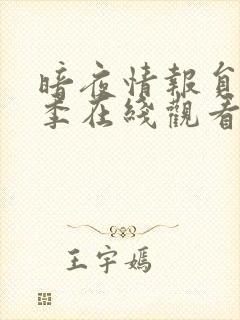 暗夜情報員
季在綫觀看
王宇嫣